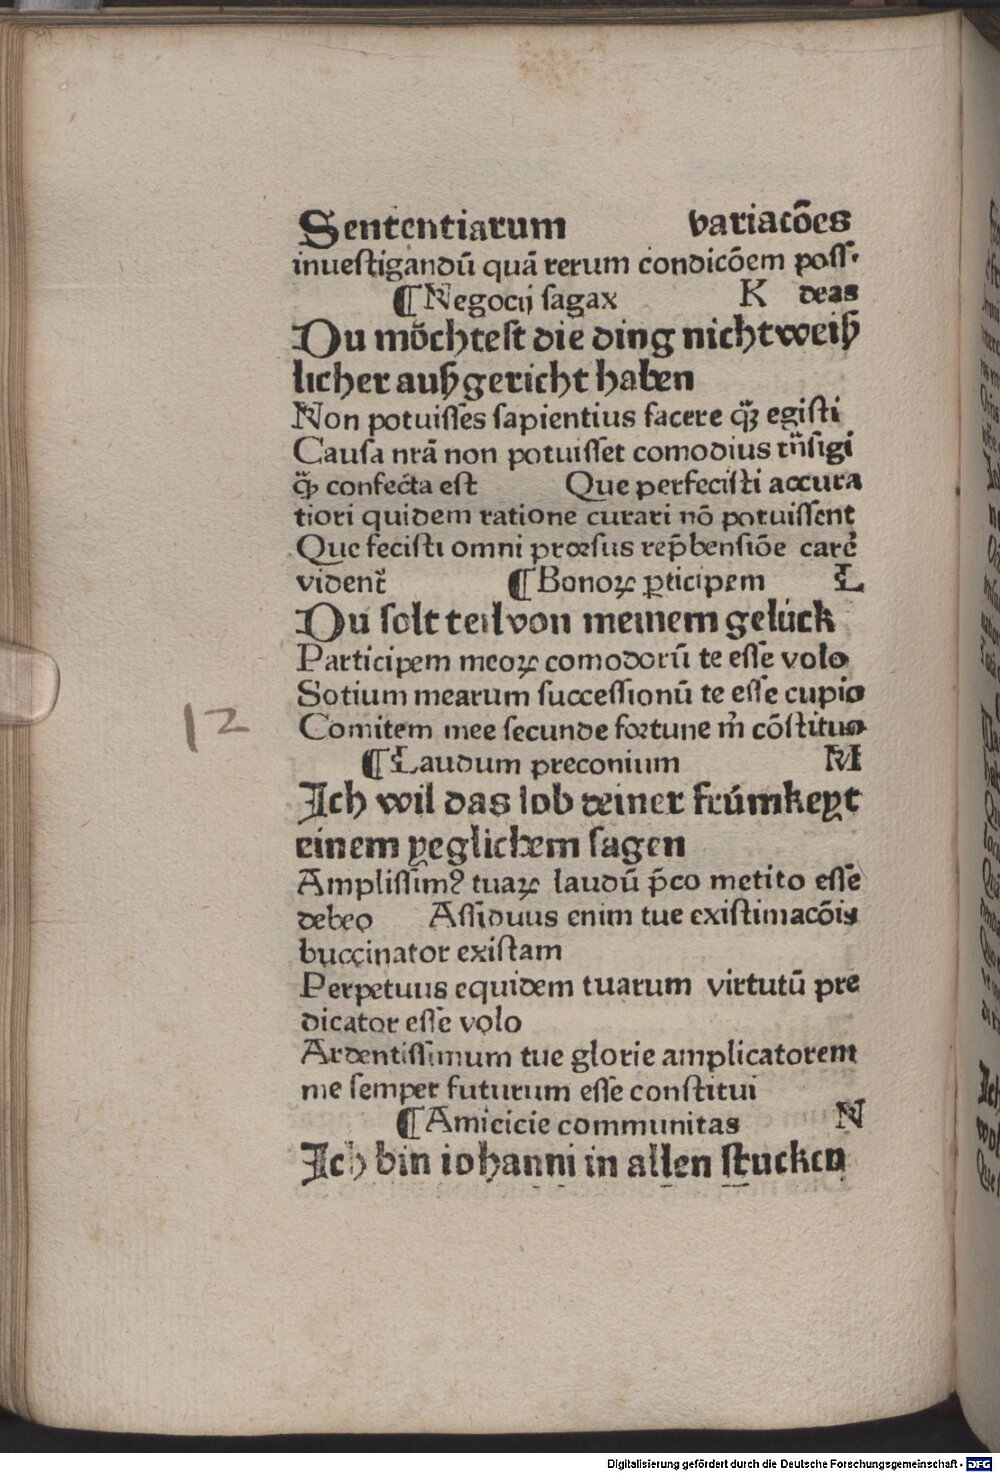 Sententiarum variacōes
inuestigandū quā rerum condicōem poss̄.
¶Negocij sagax K deas
Du möchtest die ding nicht weiß
licher außgericht haben
Non potuisses sapientius facere q̄ȝ egisti
Causa nr̄ā non potuisset comodius
confecta est Que perfecisti accura
tiori quidem ratione curari nō potuissent
Que fecisti omni prorsus rep̄hensiōe carē
videnť ¶Bonoꝝ ꝑticipem L
Du solt teil von meinem gelück
Participem meoꝝ comodorū te esse volo
Sotium mearum successionū te esse cupio
Comitem mee secunde fortune m̄ cōstituo
¶Laudum preconium M
Ich wil das lob deiner frúmkeyt
einem yeglichem sagen
Amplissimꝰ tuaꝝ laudū p̄co metito esse
debeo Assiduus enim tue existimacōis
buccinator existam
Perpetuus equidem tuarum virtutū pre
dicator esse volo
Ardentissimum tue glorie amplicatorem
me semper futurum esse constitui
¶Amicicie communitas N
Ich bin iohanni in allen stucken
12
Digitalisierung gefördert durch die Deutsche Forschungsgemeinschaft - DFG